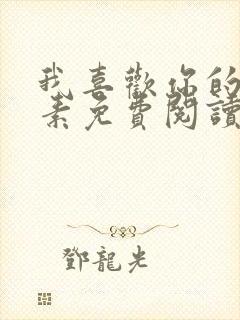 我喜歡你的
素免費閱讀
鄧龍光